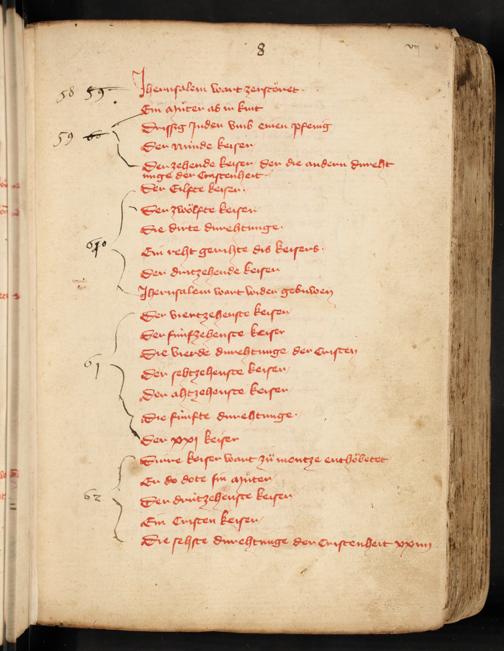 8
vij
58 59
Jherusalem wart zerstöret
Ein muter as ir kint
59 60
Drissig Juden umb einen pfenig
Der nunde keiser
Der zehende keiser der die andern dureht
unge der Cristenheit
Der Eilfte keiser
Der zwölfte keiser
Die dirte durehtunge
60
Ein reht gerihte dis keisers
Der dritzehende keiser
Jherusalem wart wider gebuwen
Der viertzehenste keiser
Der funfzehenste keiser
Die vierde durehtunge der Cristen
61
Der sehtzehenste keiser
Der ahtzehenste keiser
Die fünfte durehtunge
Der xxj keiser
keiser wart zü mentze enthöbetet
Er do dote sin müter
62
Der dritzehenste keiser
Ein Cristen keiser
Die sehste durehtunge der Cristenheit